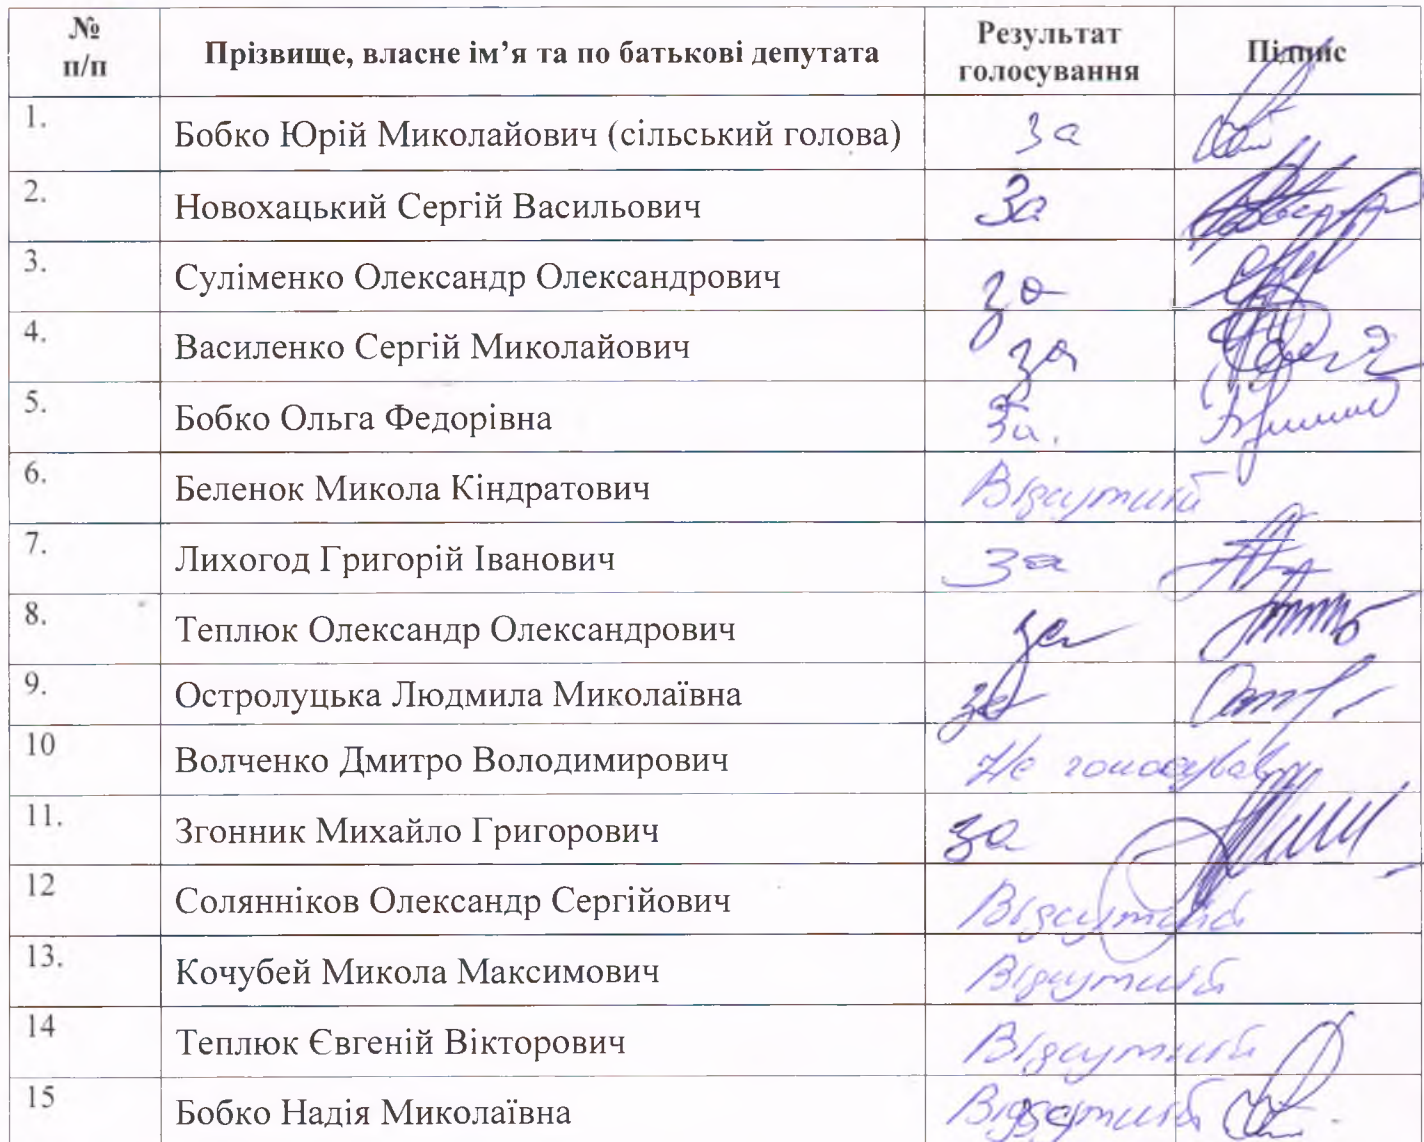 № п/п Прізвище, власне ім’я та по батькові депутата Результат голосування Підпис
1. Бобко Юрій Миколайович (сільський голова) За
2. Новохацький Сергій Васильович За
3. Суліменко Олександр Олександрович за
4. Василенко Сергій Миколайович за
5. Бобко Ольга Федорівна За.
6. Беленок Микола Кіндратович Відсутній
7. Лихогод Григорій Іванович За
8. Теплюк Олександр Олександрович за
9. Остролуцька Людмила Миколаївна за
10 Волченко Дмитро Володимирович Не голосував
11. Згонник Михайло Григорович за
12 Солянніков Олександр Сергійович Відсутній
13. Кочубей Микола Максимович Відсутній
14 Теплюк Євгеній Вікторович Відсутній
15 Бобко Надія Миколаївна